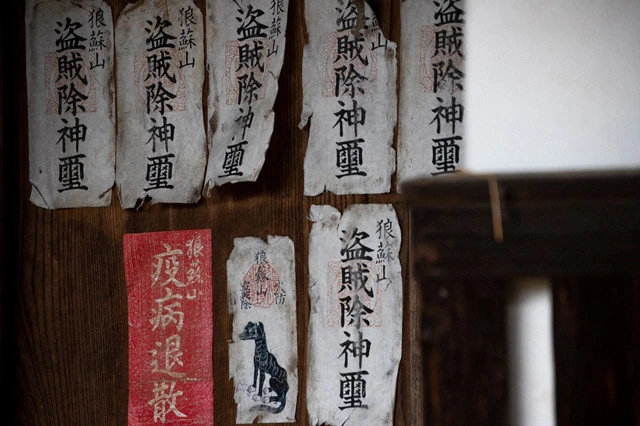 盗賊除神璽
山
盗賊除神璽
狼蘇山
盗賊除神璽
狼蘇山
盗賊除神璽
狼蘇山
盗賊除神璽
狼蘇山
盗賊除神璽
火防
狼蘇山
盗賊除
狼蘇山
疫病退散